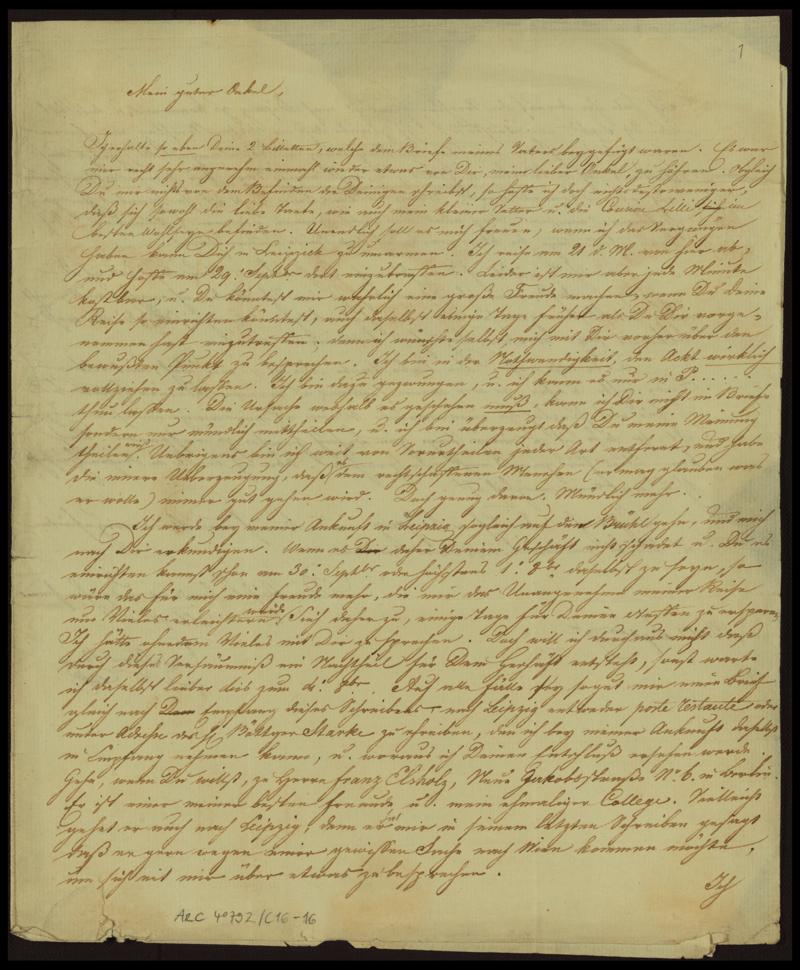 1
Mein guter Onkel,
Ich erhalte so eben Deine 2 Billetten, welche dem Briefe meines Vaters beygefügt waren. Es war
mir recht sehr angenehm einmahl wieder etwas von Dir, mein lieber Onkel, zu hören. Obgleich
Du mir nichts von dem Befinden der Deinigen schreibst, so hoffe ich doch nichts destoweniger,
daß sich sowohl die liebe Tante, wie auch mein kleiner Vetter u. die Cousine Lilli sich im
besten Wohlseyn befinden. Unendlich soll es mich freuen, wenn ich das Vergnügen
haben kann Dich in Leipzick zu umarmen. Ich reise am 21 d. M. von hier ab,
und hoffe am 29. Septbr dort einzutreffen. Leider ist mir aber jede Minute
kostbar, u. Du könntest mir wahrlich eine große Freude machen, wenn Du Deine
Reise so einrichten könntest, auch daselbst einige Tage früher als Du Dir vorge-
nommen hast einzutreffen, denn ich wünschte selbst, mich mit Dir vorher über den
bewußten Punkt zu besprechen. Ich bin in der Nothwendigkeit, den Ackt wirklich
vollziehen zu lassen. Ich bin dazu gezwungen, u. ich kann es nur in P......
thun lassen. Die Ursache weshalb es geschehen muß, kann ich Dir nicht im Briefe
sondern nur mündlich mittheilen, u. ich bin überzeugt daß Du meine Meinung
theilen wirst. Uebrigens bin ich weit von Vorurtheilen jeder Art entfernt, und habe
die innere Ueberzeugung, daß es dem rechtschaffenen Menschen (er mag glauben was
er wolle) immer gut gehen wird. Doch genug davon. Mündlich mehr.
Ich werde bey meiner Ankunft in Leipzig sogleich auf den Brühl gehn, und mich
nach Dir erkundigen. Wenn es daher Deinem Geschäft nicht schadet u. Du es
einrichten kannst schon am 30. Septbr oder höchstens 1. 8br daselbst zu seyn, so
wäre das für mich eine Freude mehr, die mir das Unangenehme meiner Reise
um Vieles erleichtern würde. Sieh daher zu, einige Tage für Deinen Neffen zu ersparen.
Ich hätte ohnedem Vieles mit Dir zu sprechen. Doch will ich durchaus nicht daß
durch dieses Versäumniß ein Nachtheil für Dein Geschäft entsteht, sonst warte
ich daselbst lieber bis zum 4. 8br. Auf alle Fälle sey so gut mir einen Brief
gleich nach Empfang dieses Schreibens nach Leipzig entweder poste restante oder
unter Adresse des H. Böttger Starke zu schreiben, den ich bey meiner Ankunft daselbst
in Empfang nehmen kann, u. woraus ich Deinen Entschluß ersehen werde.
Gehe, wenn Du willst, zu Herrn Franz Elsholz, Neue Jakobsstraße No 6. in Berlin.
Er ist einer meiner besten Freunde u. mein ehmaliger College. Vielleicht
gehet er auch nach Leipzig, denn er hat mir in seinem letzten Schreiben gesagt
daß er gern wegen einer gewissen Sache nach Wien kommen möchte,
um sich mit mir über etwas zu besprechen.
Ich
ARC 4°792/C16-16